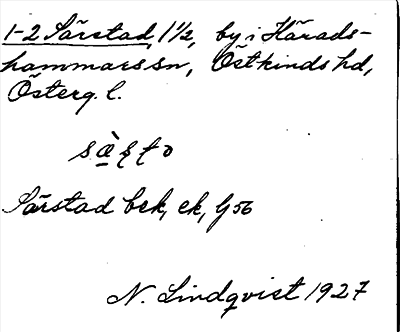 1-2 Särstad, 1 1/2, by i Härads-
hammars sn, Östkinds hd,
Österg. l.
Särstad bek, ek, G 56
N. Lindqvist 1927